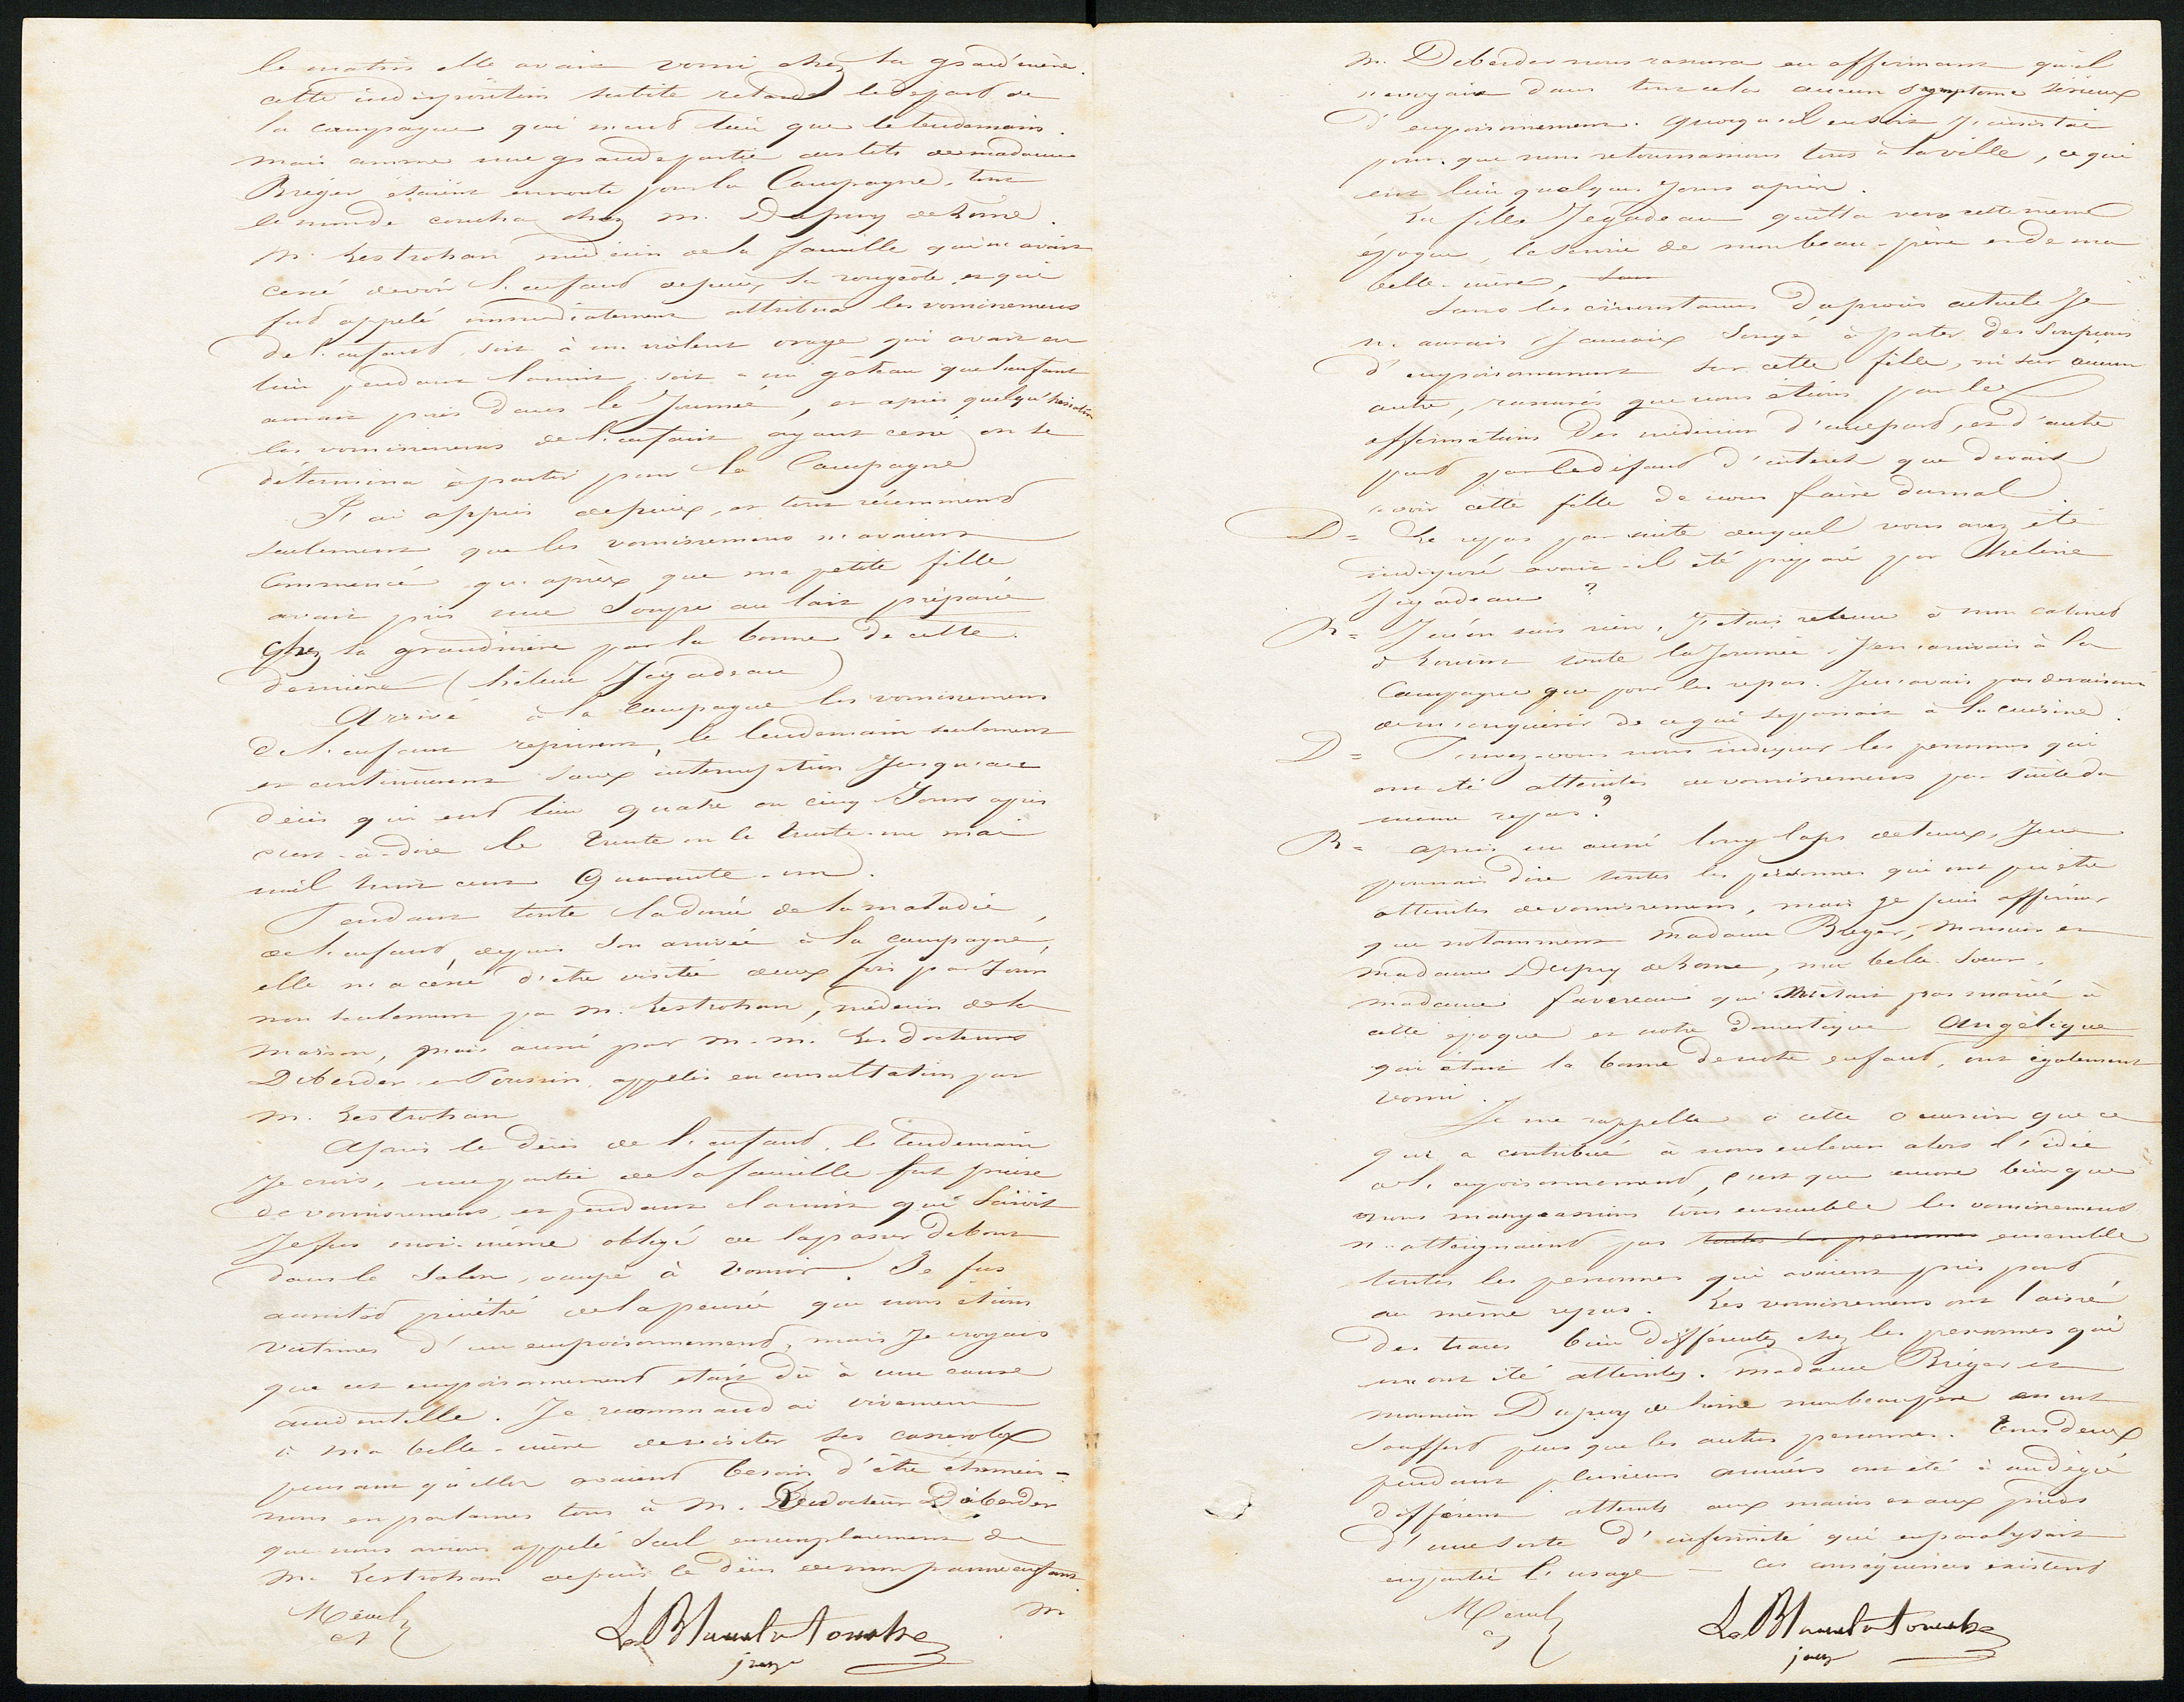 le matin elle avait vomi chez sa grand'mère.
cette indisposition subite retarda le départ de
la campagne qui n'eut lieu que le lendemain.
mais comme une grande partie des lits de madame
Bréger étaient en route pour la Campagne, tout
le monde coucha chez m. Dupuy de Lôme.
M. Lestrohan médecin de la famille qui n'avait
cessé de voir l'enfant depuis sa rougeole et qui
fut appelé immédiatement attribua les vomissemens
de l'enfant, soit à un violent orage qui avait eu
lieu pendant la nuit, soit à un gâteau que l'enfant
aurait pris dans la Journée, et après quelqu'hésitation
les vomissemens de l'enfant ayant cessé on se
détermina à partir pour la Campagne
J'ai appris depuis, et tout récemment
seulement que les vomissemens n'avaient
Commencé qu'après que ma petite fille
avait pris une Soupe au lait préparée
chez sa grandmère par la bonne de cette
dernière (hélène Jégadeau)
Arrivé à la Campagne les vomissemens
de l'enfant reprirent, le lendemain seulement
et continuèrent sans interruption Jusqu'au
décès qui eut lieu quatre ou cinq Jours après
c'est-à-dire le trente ou le trente-un mai
mil huit cent Quarante-un.
Pendant toute la durée de la maladie
de l'enfant, depuis son arrivée à la campagne,
elle n'a cessé d'être visitée deux fois par Jour
non seulement par M. Lestrohan, médecin de la
maison, mais aussi par M.M. les docteurs
Deberder et Toussin, appelés en consultation par
M. Lestrohan
Après le décès de l'enfant, le lendemain
Je crois, une partie de la famille fut prise
de vomissemens, et pendant la nuit qui Suivit
Je fus moi-même obligé de la passer debout
dans le Salon, occupé à vomir. Je fus
aussitôt pénétré de la pensée que nous étions
victimes d'un empoisonnement, mais Je croyais
que cet empoisonnement était dû à une cause
accidentelle. Je recommandai vivement
à ma belle-mère de visiter ses casseroles
pensant qu'elles avaient besoin d'être étamées -
nous en parlames tous à M. Le docteur Deberder
que nous avions appelé Seul en remplacement de
M. Lestrohan depuis le décès de mon pauvre enfant.
M
Le Blanc la touche
juge
M. Deberder nous rassura en affirmant qu'il
n'voyait dans tout cela aucun symptome sérieux
d'empoisonnement. Quoiqu'il en soit J'insistai
pour que nous retournassions tous à la ville, ce qui
eut lieu quelques Jours après.
La fille Jégadeau quitta vers cette même
époque, le service de mon beau-père et de ma
belle-mère,
Sans les circonstances du procès actuel Je
n'aurais Jamais songé à porter des soupçons
d'empoisonnement sur cette fille, ni sur aucun
autre, rassurés que nous étions par les
affirmations des médecins d'une part, et d'autre
part par le défaut d'intérêt que devait
avoir cette fille de nous faire du mal.
D = Le repas par suite duquel vous avez été
indisposé avait-il été préparé par Hélène
Jégadeau ?
R = Je n'en sais rien. J'étais retenu à mon cabinet
à Lorient toute la Journée. Je n'arrivais à la
Campagne que pour les repas. Je n'avais pas de raisons
de m'enquérir de ce qui se passait à la cuisine.
D = Pouvez-vous nous indiquer les personnes qui
ont été atteintes de vomissemens par suite du
même repas ?
R = après un aussi long laps de temps, Je ne
pourrais dire toutes les personnes qui ont pu être
atteintes de vomissemens, mais je puis affirmer
que notamment Madame Bréger, Monsieur et
Madame Dupuy de Lome, ma belle-soeur
madame favereau qui n'était pas mariée à
cette époque et notre domestique Angélique
qui était la bonne de notre enfant, ont également
vomi.
Je me rappelle à cette occasion que ce
qui a contribué à nous enlever alors l'idée
de l'empoisonnement, c'est que encore bien que
nous mangeassions tous ensemble les vomissemens
n'atteignaient pas toutes les personnes ensemble
toutes les personnes qui avaient pris part
au même repas. Les vomissemens ont laissé
des traces bien différentes chez les personnes qui
en ont été atteintes. Madame Bréger et
monsieur Dupuy de Lome mon beau père en ont
souffert plus que les autres personnes. Tous deux
pendant plusieurs années ont été à un degré
différent atteints aux mains et aux pieds
d'une sorte d'infirmité qui en paralysait
en partie l'usage — Ces conséquences existent
Le Blanc la touche
juge